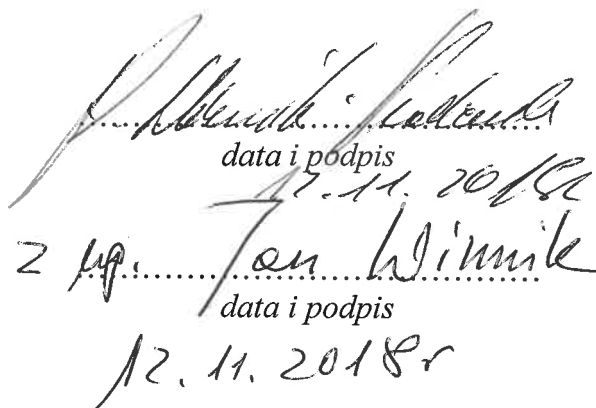 data i podpis
12.11.2018r
z up. Jan Winnik
data i podpis
12.11.2018r